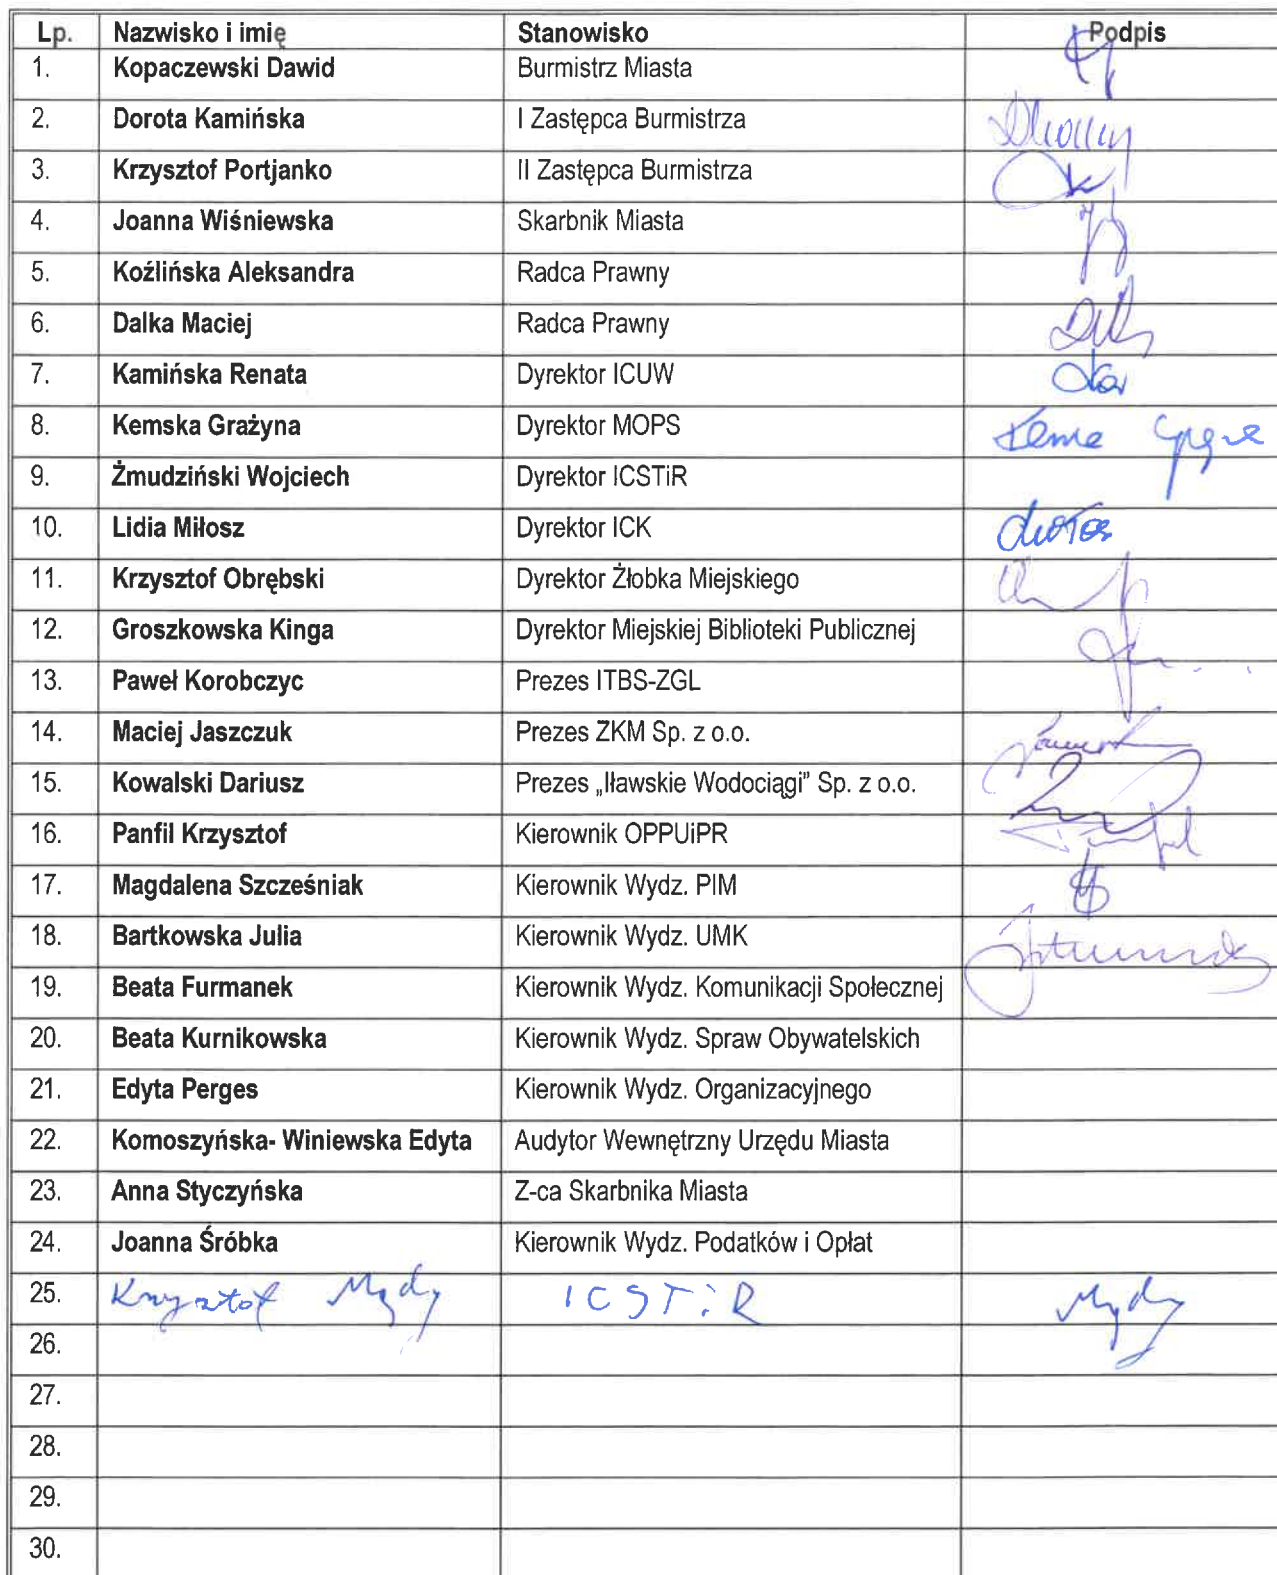 Lp. Nazwisko i imię Stanowisko Podpis
1. Kopaczewski Dawid Burmistrz Miasta
2. Dorota Kamińska I Zastępca Burmistrza
3. Krzysztof Portjanko II Zastępca Burmistrza
4. Joanna Wiśniewska Skarbnik Miasta
5. Koźlińska Aleksandra Radca Prawny
6. Dalka Maciej Radca Prawny
7. Kamińska Renata Dyrektor ICUW
8. Kemska Grażyna Dyrektor MOPS
9. Żmudziński Wojciech Dyrektor ICSTiR
10. Lidia Miłosz Dyrektor ICK
11. Krzysztof Obrębski Dyrektor Żłobka Miejskiego
12. Groszkowska Kinga Dyrektor Miejskiej Biblioteki Publicznej
13. Paweł Korobczyc Prezes ITBS-ZGL
14. Maciej Jaszczuk Prezes ZKM Sp. z o.o.
15. Kowalski Dariusz Prezes „Iławskie Wodociągi” Sp. z o.o.
16. Panfil Krzysztof Kierownik OPPUiPR
17. Magdalena Szcześniak Kierownik Wydz. PIM
18. Bartkowska Julia Kierownik Wydz. UMK
19. Beata Furmanek Kierownik Wydz. Komunikacji Społecznej
20. Beata Kurnikowska Kierownik Wydz. Spraw Obywatelskich
21. Edyta Perges Kierownik Wydz. Organizacyjnego
22. Komoszyńska- Winiewska Edyta Audytor Wewnętrzny Urzędu Miasta
23. Anna Styczyńska Z-ca Skarbnika Miasta
24. Joanna Śróbka Kierownik Wydz. Podatków i Opłat
25. Krzysztof ICSTiR
26.
27.
28.
29.
30.